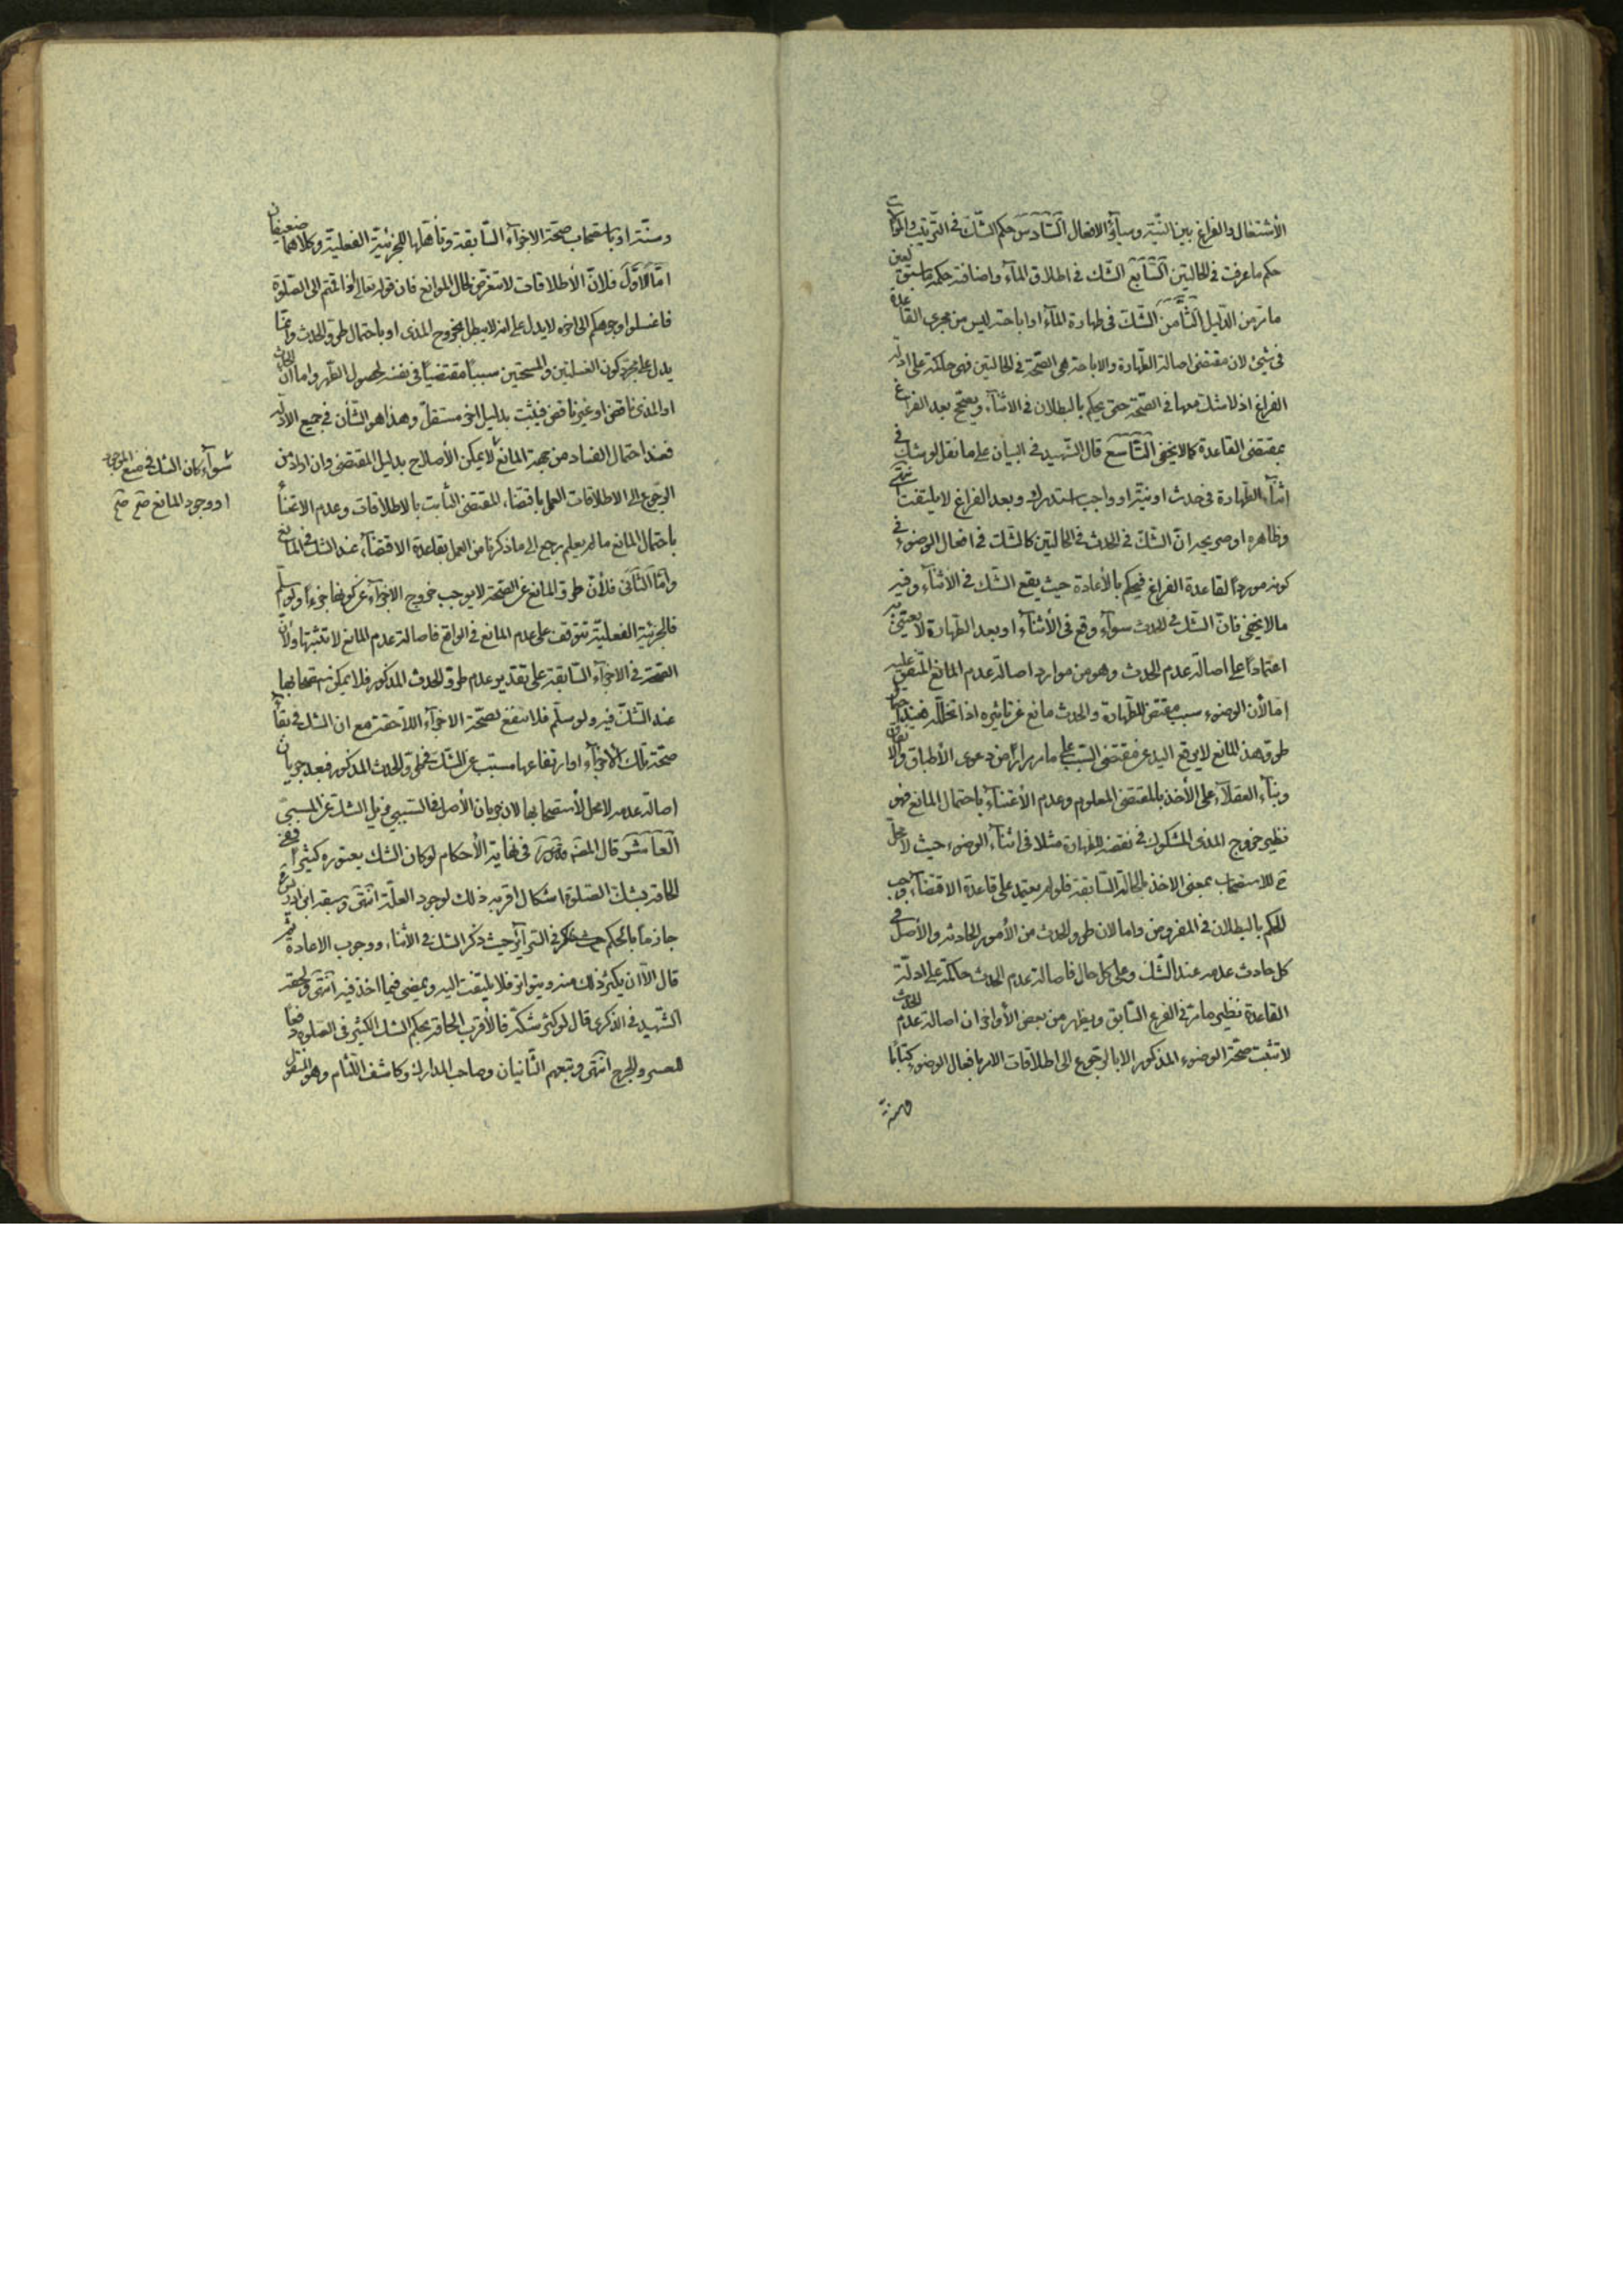 الأشتغال والفراغ بين النيّة وسآئر الافعال السّادس حكم الشّك في الترتيب والموالات
حكم ما عرفت في الحالتين السّابع الشّك في اطلاق المآء واضافته حكمه ما سبق بعين
ما مرّ من الدّليل الثّامن الشّك في طهارة المآء او اباحته ليس من مجرى القاعدة
في شيئ لان مقتضى اصالة الطّهارة والاباحة هى الصّحّة في الحالتين فهى حاكمة على ادلّة
الفراغ اذ لا شك معها في الصّحّة حتى يحكم بالبطلان في الأثنآء ويصحّح بعد الفراغ
بمقتضى القاعدة كما لا يخفى التّاسع قال الشّهيد في البيان على ما نقل لو شك في
اثنآء الطّهارة في حدث او نيّة او واجب استدرك وبعد الفراغ لا يلتفت انتهى
وظاهره او صريحه انّ الشّك في الحدث في الحالتين كالشّك في افعال الوضوء في
كونه موردًا لقاعدة الفراغ فيحكم بالأعادة حيث يقع الشّك في الاثنآء وفيه
ما لا يخفى فانّ الشّك في الحدث سوآء وقع في الأثنآء او بعد الطّهارة لا يعتنى به
اعتمادًا على اصالة عدم الحدث وهو من موارد اصالة عدم المانع المتّفق عليه
امّا لأن الوضوء سبب مقتض للطّهارة والحدث مانع عن تاثيره اذا تخلّله فبمجرد احتمال
طروّ هذ المانع لا يرفع اليد عن مقتضى السّبب على ما مر مرارًا من دعوى الأطباق والاتفاق
وبنآء العقلآء على الأخذ بالمقتضى المعلوم وعدم الأعتنآء باحتمال المانع فهو
نظير خروج المذى المشكوك في نقضه للطهارة مثلا في اثنآء الوضوء حيث لا محلّ
ح للاستصحاب بمعنى الاخذ بالحالة السّابقة فلو لم يعتمد على قاعدة الاقتضآء وجب
الحكم بالبطلان في المفروض واما لان طرو الحدث من الأمور الحادثه والأصل في
كل حادث عدمه عند الشّك وعلى كل حال فاصالة عدم الحدث حاكمة على ادلّة
القاعدة نظير ما مرّ في الفرع السّابق ويظهر من بعض الأواخر ان اصالة عدم الحدث
لا تثبت صحّة الوضوء المذكور الا بالرّجوع الى اطلاقات الامر بافعال الوضوء كتابًا
وسنّة
وسنّة او باستصحاب صحّة الاجزآء السّابقة وتأهّلها للجزئيّة الفعليّة وكلاهما ضعيفان
امّا الأوّل فلانّ الأطلاقات لا تتعرّض لحال الموانع فان قوله تعالى اذا قمتم الى الصّلوة
فاغسلوا وجوهكم الى اخره لا يدل على انه لا يبطل بخروج المذى او باحتمال طروّ الحدث وانما
يدل على مجرّد كون الغسلتين والمسحتين سببًا مقتضيًا في نفسه لحصول الطّهر واما ان الحدث
او المذى ناقض او غير ناقض فيثبت بدليل اخر مستقلّ وهذا هو الشّأن في جميع الأدلّة
فعند احتمال الفساد من جهة المانع لا يمكن الأصلاح بدليل المقتضى وان اراد من
الرّجوع الى الاطلاقات العمل باقتضاء المقتضى الثّابت بالاطلاقات وعدم الاعتنآء
باحتمال المانع ما لم يعلم رجع الى ما ذكرنا من العمل بقاعدة الاقتضآء عند الشك في المانع
سوآء كان الشك في منع الموجود
او وجود المانع صح صح
وامّا الثّانى فلأنّ طروّ المانع عن الصّحّة لا يوجب خروج الاجزآء عن كونها جزءًا ولو سلّم
فالجزئيّة الفعليّة تتوقف على عدم المانع في الواقع فاصالة عدم المانع لا تثبتها ولأنّ
الصّحّة في الاجزآء السّابقة على تقدير عدم طروّ الحدث المذكور فلا يمكن استصحابها
عند الشّك فيه ولو سلّم فلا تنفع لصحّة الاجزآء اللّاحقة مع ان الشك في بقآء
صحّة تلك الأجزآء او ارتفاعها مسبّب عن الشّك في طروّ الحدث المذكور فبعد جريان
اصالة عدمه لا محل لأستصحابها لان جريان الأصل في السّببي مزيل الشّك عن المسبّبي
العاشر قال المصّ في نهاية الأحكام لو كان الشك يعتوره كثيرًا ففي
الحاقه بشك الصّلوة اشكال اقربه ذلك لوجود العلّة انتهى وسبقه ابن ادريس
جازمًا بالحكم في السّرآئر حيث ذكر الشك في الأثنآء ووجوب الاعادة ثم
قال الّا ان يكثر ذلك منه ويتواتر فلا يلتفت اليه ويمضى فيما اخذ فيه انتهى ولحقه
الشّهيد في الذّكرى قال لو كثر شكّه فالأقرب الحاقه بحكم الشك الكثير في الصّلوة دفعًا
للعسر والحرج انتهى وتبعهم الثّانيان وصاحب المدارك وكاشف اللّثام وهو المنقول